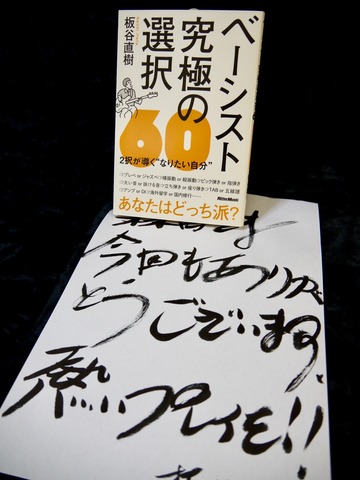 板谷直樹
ベーシスト
究極の
選択
60
2択が導く“なりたい自分”
プレベ or ジャズベ
縦振動
ピック弾き or 指弾き
太い音 or 抜ける音
立ち弾き or 座り弾き
TAB or 五線譜
アンプ or DI
海外留学 or 国内修行
あなたはどっち派?
RittorMusic
今回もあり
とうございます
熱いプレイを!!